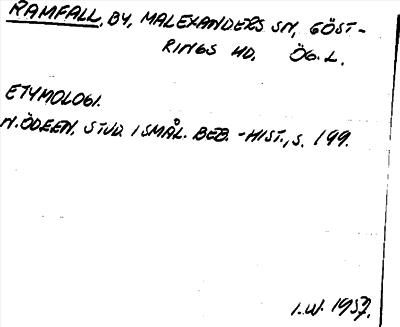 RAMFALL, BY, MALEXANDERS SN, GÖST-
RINGS HD, ÖG. L.
ETYMOLOGI.
N. ÖDEEN, STUD. I SMÅL. BEB.-HIST., s. 199.
I.W. 1937.